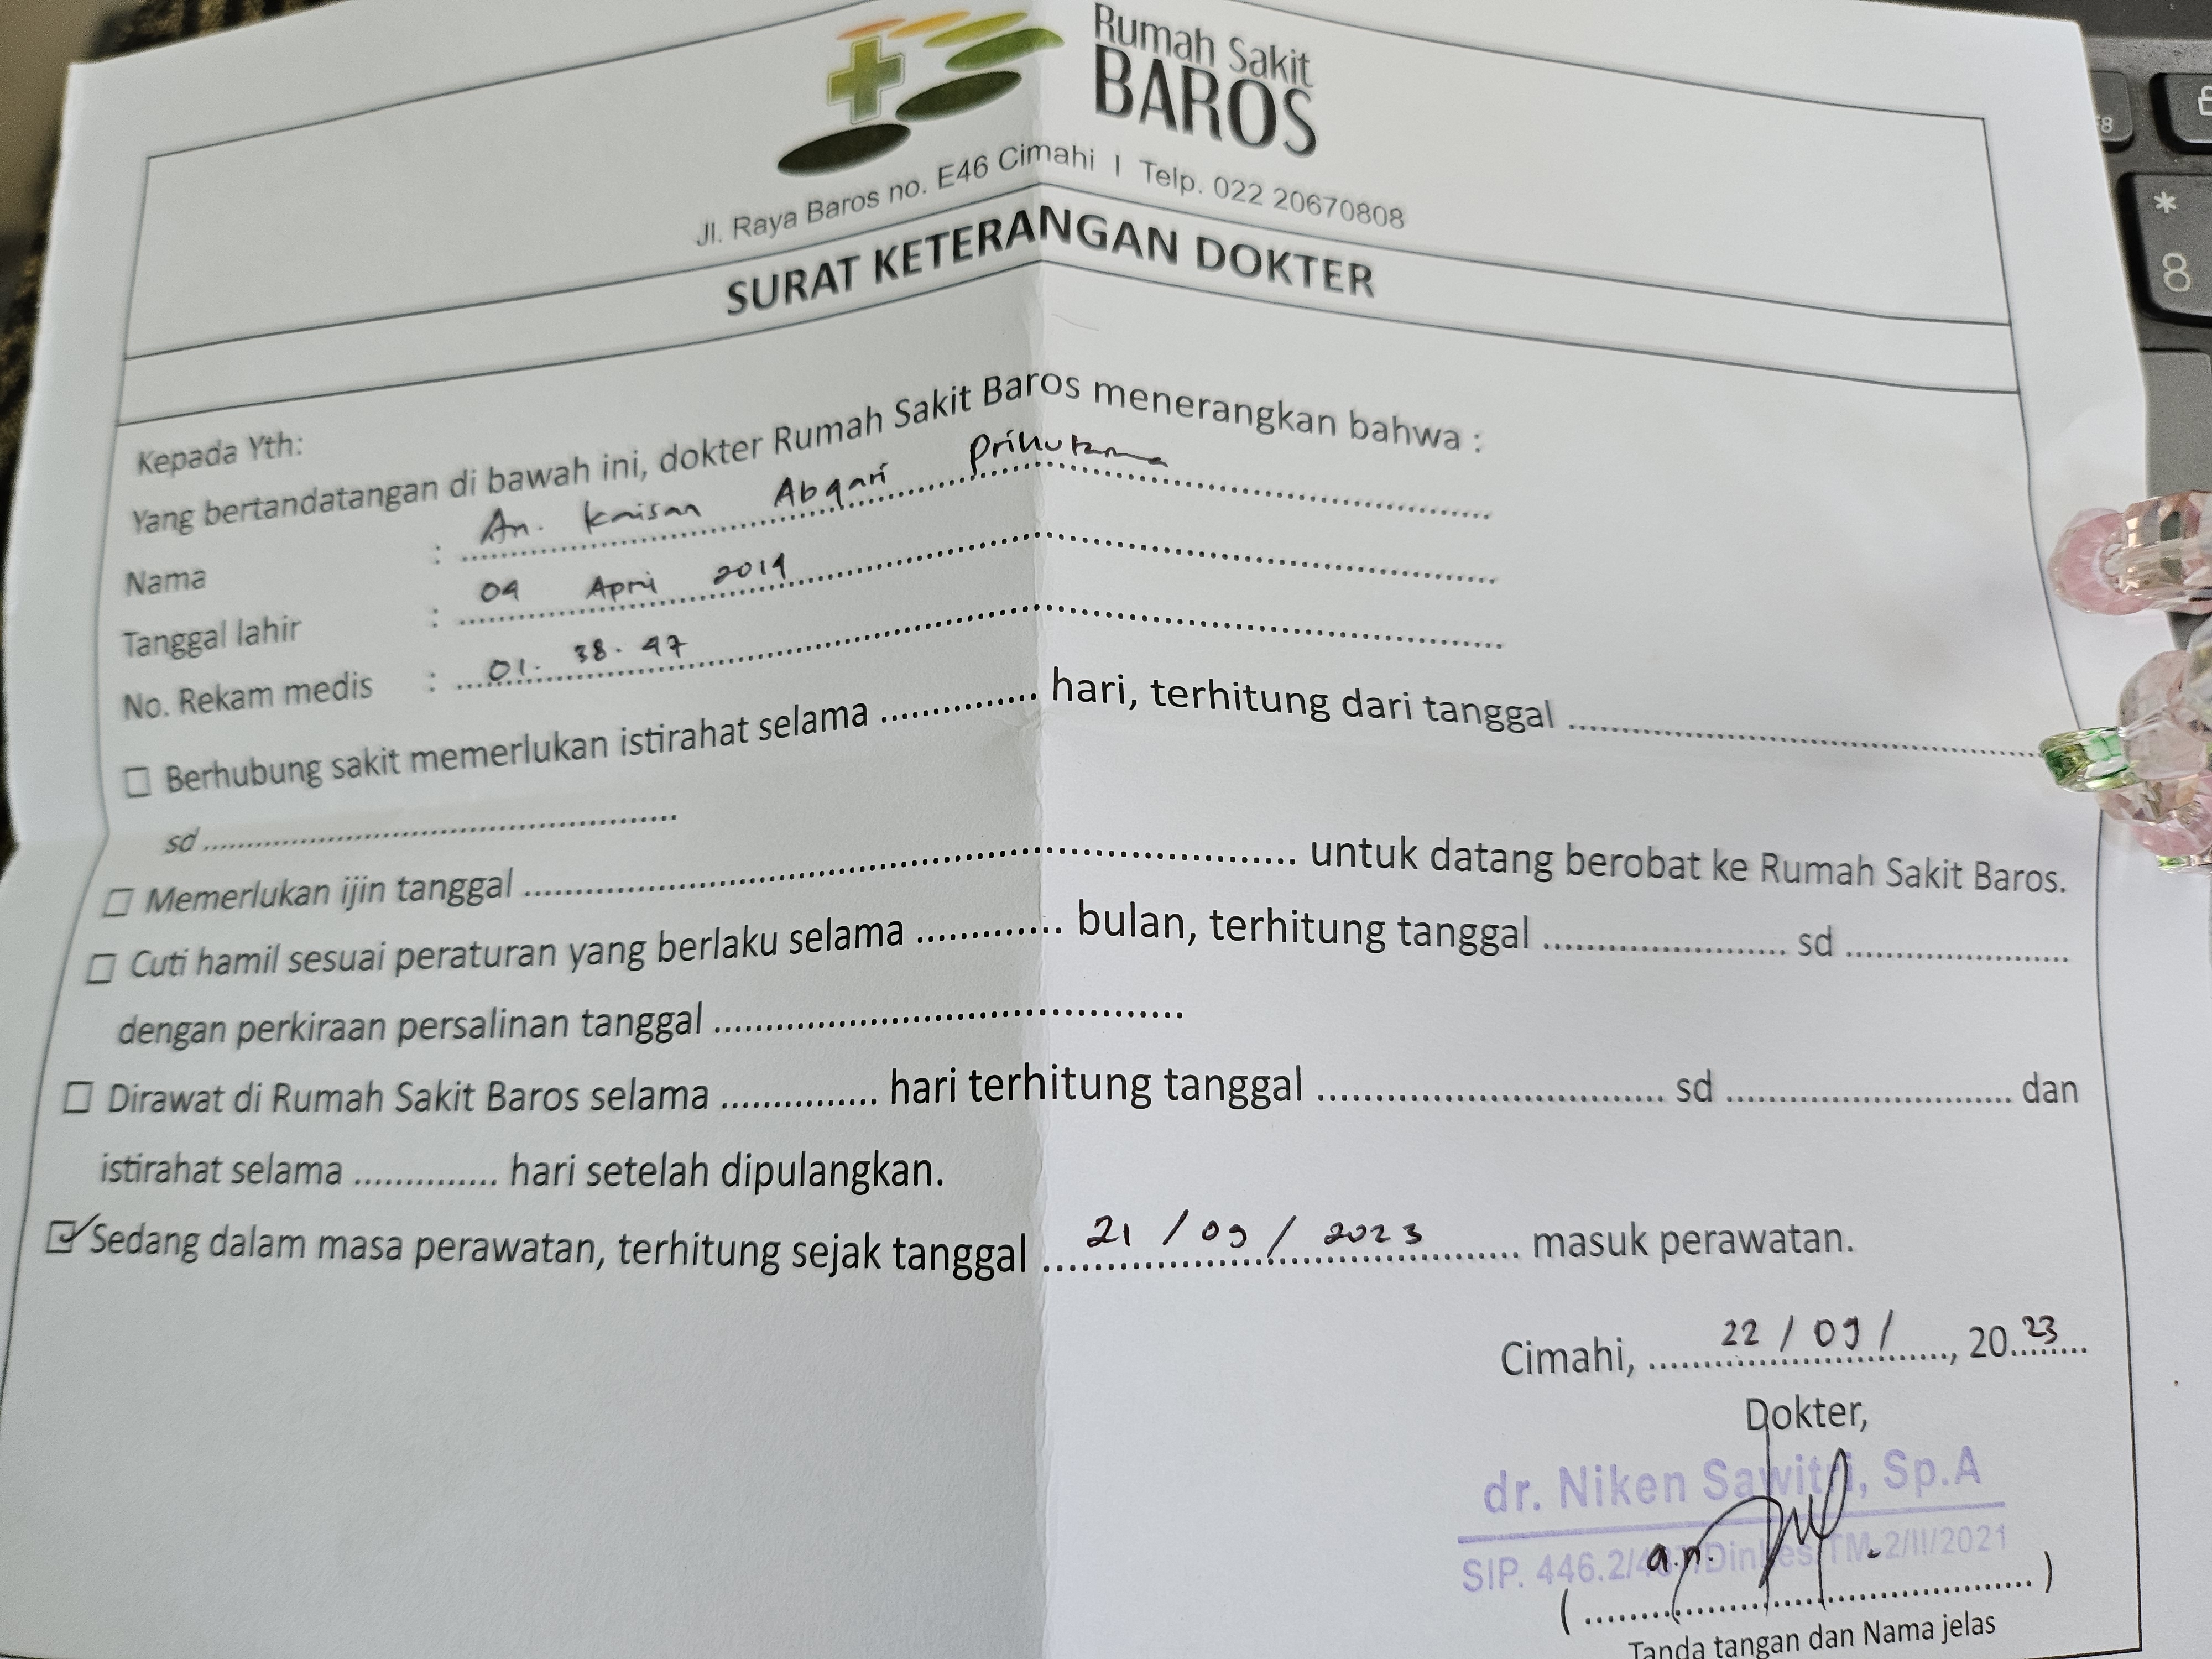 Rumah Sakit
BAROS
Jl. Raya Baros no. E46 Cimahi | Telp. 022 20670808
SURAT KETERANGAN DOKTER
Kepada Yth:
Yang bertandatangan di bawah ini, dokter Rumah Sakit Baros menerangkan bahwa :
Nama : An. Abqari
Tanggal lahir : 09 April 2019
No. Rekam medis : 01. 38. 97
☐ Berhubung sakit memerlukan istirahat selama .............. hari, terhitung dari tanggal ..............
sd ..............
☐ Memerlukan ijin tanggal .............. untuk datang berobat ke Rumah Sakit Baros.
☐ Cuti hamil sesuai peraturan yang berlaku selama .............. bulan, terhitung tanggal .............. sd ..............
dengan perkiraan persalinan tanggal ..............
☐ Dirawat di Rumah Sakit Baros selama .............. hari terhitung tanggal .............. sd .............. dan
istirahat selama .............. hari setelah dipulangkan.
☑ Sedang dalam masa perawatan, terhitung sejak tanggal 21 / 09 / 2023 masuk perawatan.
Cimahi, 22 / 09 / , 20.23
Dokter,
dr. Niken Sawitri, Sp.A
SIP. 446.2/ /Dinkes/TM-2/II/2021
a.n.
(..............)
Tanda tangan dan Nama jelas
8
*
F8